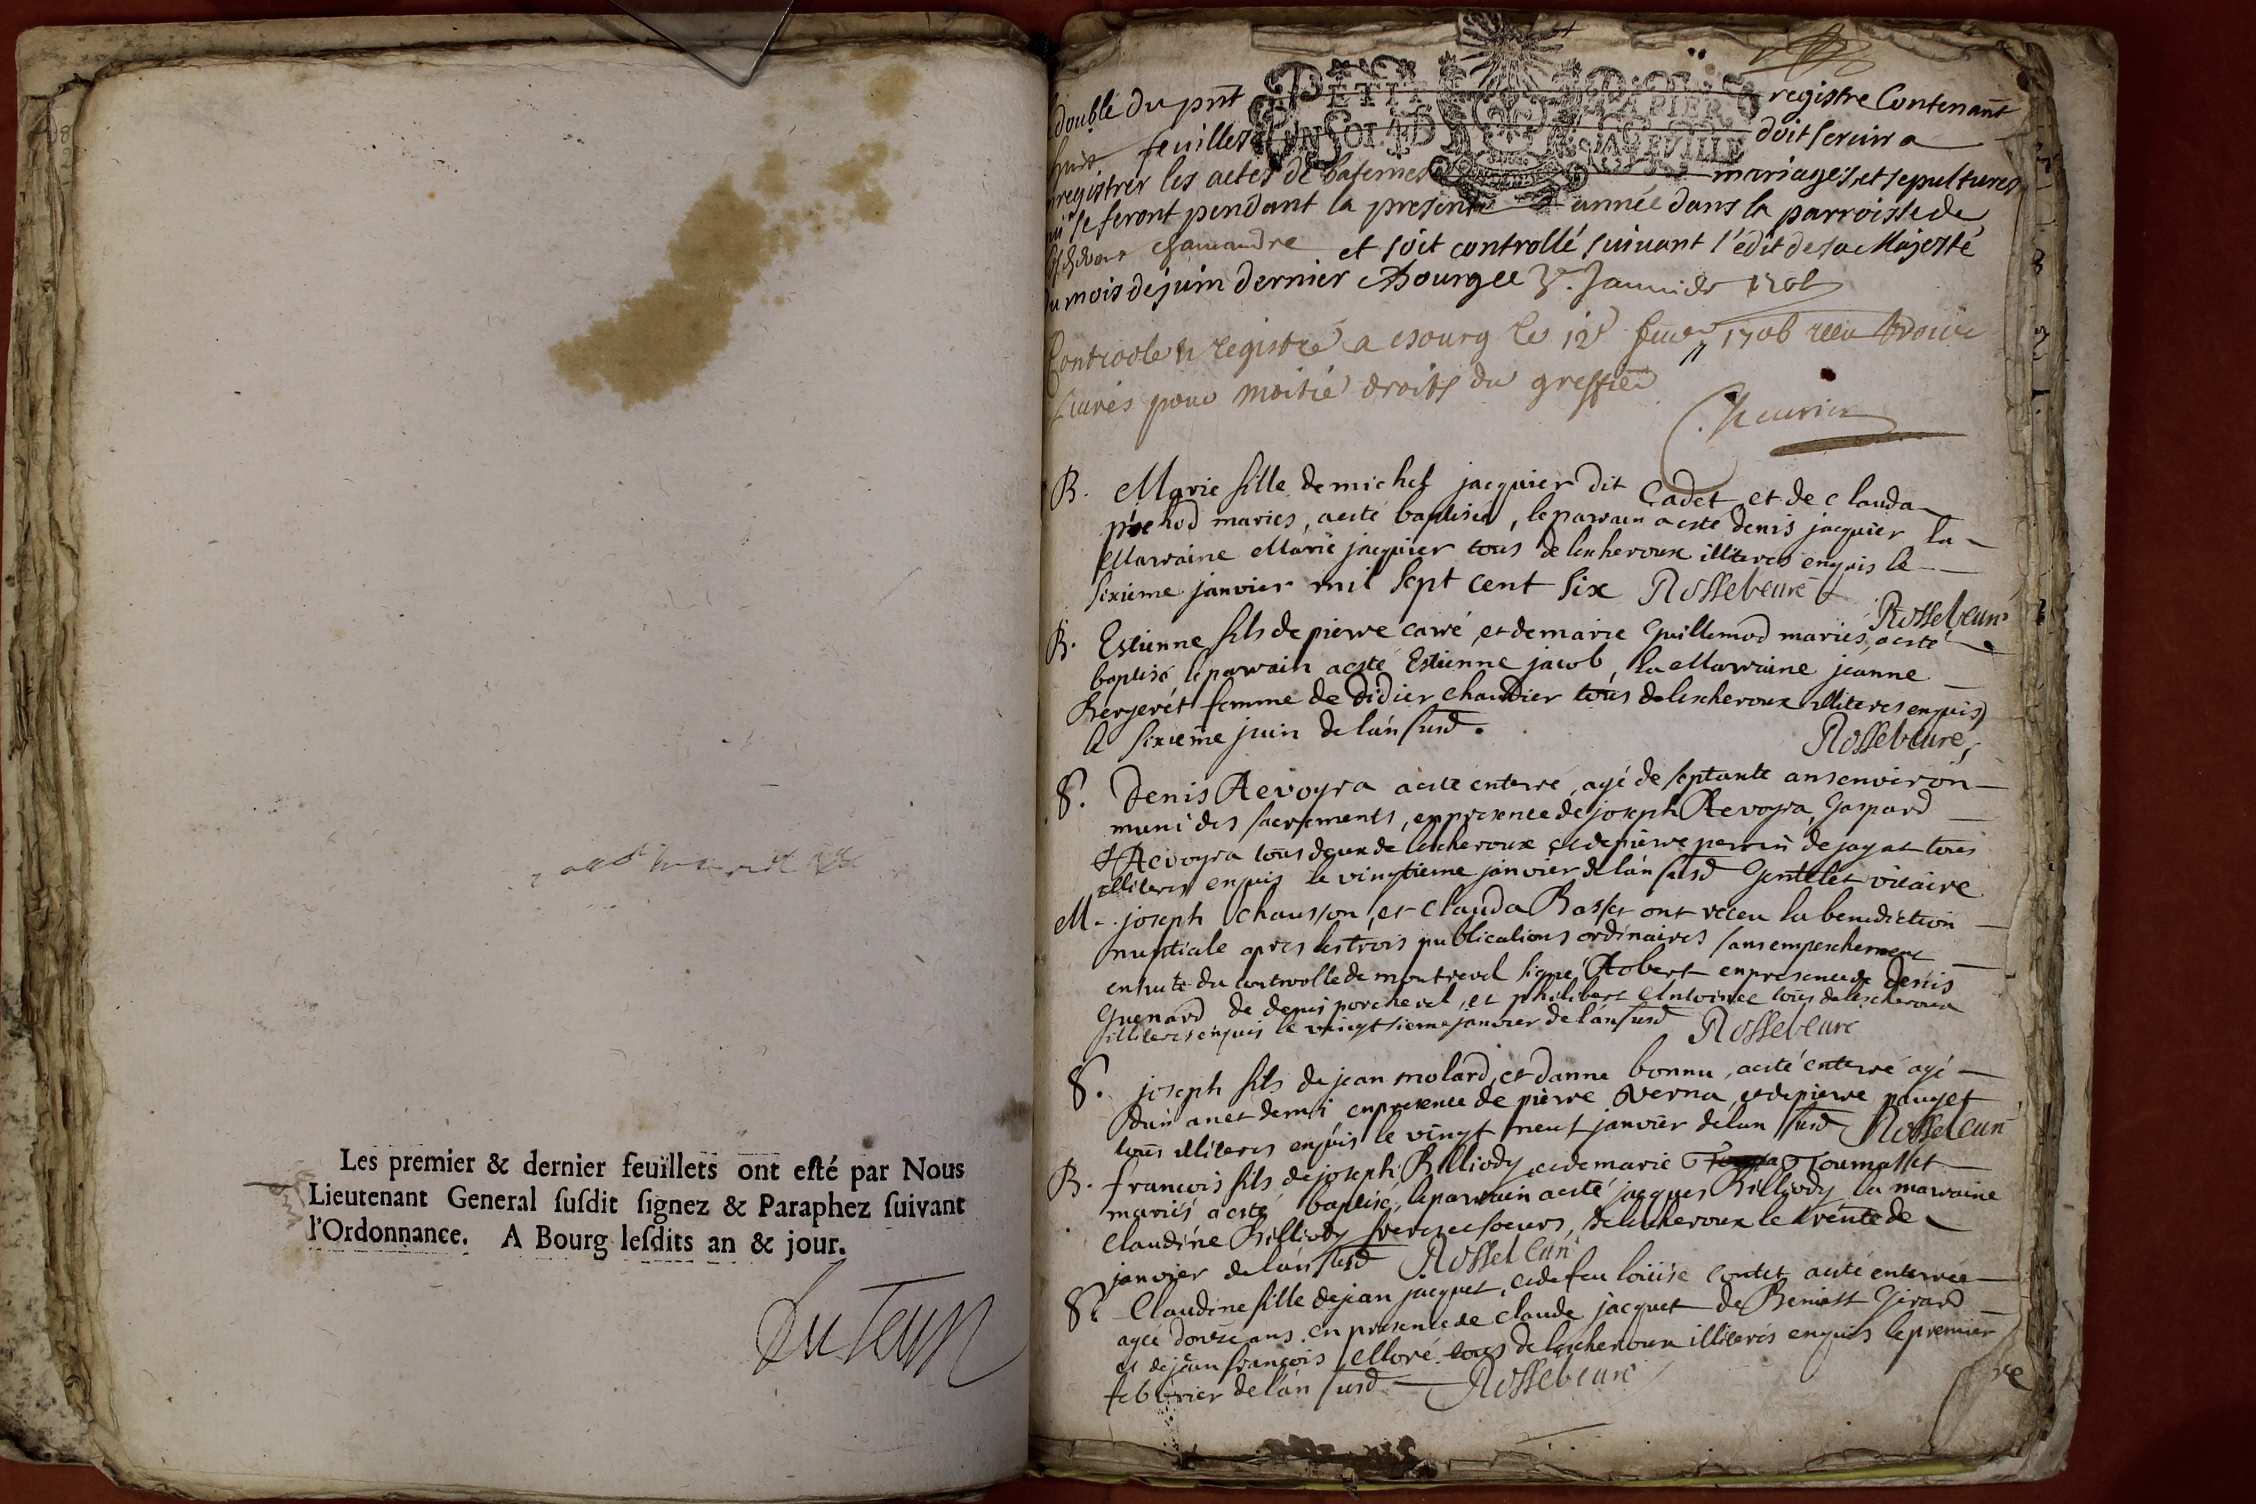 Les premier & dernier feuillets ont esté par Nous
Lieutenant General susdit signez & Paraphez suivant
l'Ordonnance. A Bourg lesdits an & jour.
double du pnt registre Contenant
feuilles doit servir a
registrer les actes de batemes mariages et sepultures
se feront pendant la presente année dans la parroisse de
et soit controllé suivant l'edit de sa Majesté
du mois de juin dernier a Bourg ce 3e. Janvier 1706
Controole & registré a bourg le 12e 1706
livres pour moitié droits du greffier
B. Marie fille de michel jacquier dit Cadet et de clauda
mariés, a esté baptisée, le parrain a esté denis jacquier la
Marraine Marie jacquier tous de lescheroux illiterés enquis le
sixieme janvier mil sept cent six Rosseleure
Rosseleure
B. Estienne fils de pierre carré et de marie Guillemod mariés, a esté
baptisé le parrain a esté Estienne jacob, la Marraine jeanne
Bergerét femme de Didier chandier tous de lescheroux illiterés enquis
le sixieme juin de l'an susd.
Rosseleure
S. Denis Revoyra a esté enterré, agé de septante ans environ
muni des sacrements, en presence de joseph Revoyra, Gaspard
Revoyra tous deux de lescheroux et de pierre perrin de jayat tous
illiterés enquis le vingtieme janvier de l'an susd Gentelet vicaire
M. joseph chausson, et Clauda Basset ont receu la benediction
nuptiale apres les trois publications ordinaires sans empeschement
ensuite du controlle de montrevel signé Robert en presence de Denis
Guenard de denis porcheral, et philibert Antoinet tous de lescheroux
illiterés enquis le vingt sixieme janvier de l'an susd Rosseleure
S. joseph fils de jean molard, et d'anne bonnu, a esté enterré agé
d'un an et demi en presence de pierre Verna, et de pierre pauget
tous illiterés enquis le vingt neuf janvier de l'an susd Rosseleure
B. francois fils de joseph Billiody et de marie Tournasset
mariés a esté baptisé, le parrain a esté jacques Billiody la marraine
Claudine Billiody freres et soeurs, de lescheroux le trente de
janvier de l'an susd Rosseleure
S. Claudine fille de jean jacquet, et de feu loüise contet a esté enterrée
agée douze ans. en presence de claude jacquet de Benoist Girard
et de jean françois tous de lescheroux illiterés enquis le premier
febvrier de l'an susd Rosseleure